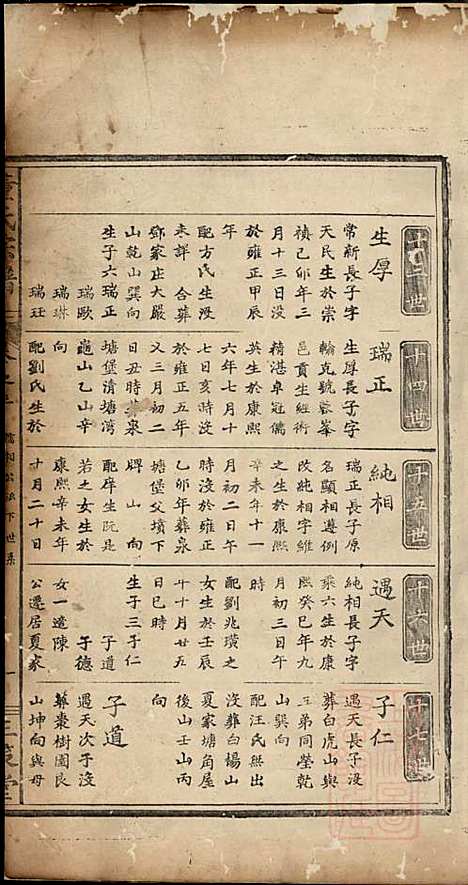 十三世
生厚
常新長子字
天民生於崇
禎己卯年三
月十三日没
於雍正甲辰
年
配方氏生没
未詳 合葬
鄧家庄大嚴
山乾山巽向
生子六瑞正
瑞歐
瑞琳
瑞玨
十四世
瑞正
生厚長子字
輪克號
邑貢生經術
精湛卓冠儒
英生於康熙
六年七月十
七日亥時没
於雍正五年
又三月初二
日丑時葬泉
塘堡清塘灣
龜山乙山辛
向
配劉氏生於
十五世
純相
瑞正長子原
名顯相遵例
改純相字維
之生於康熙
辛未年十一
月初二日午
時没於雍正
乙卯年葬泉
塘堡父墳下
山 向
配庠生阮是
若之女生於
康熙辛未年
十月二十日
十六世
遇天
純相長子字
乘六生於康
熙癸巳年九
月初三日午
時
配劉兆璜之
女生於壬辰
十月廿五
日巳時
生子三子仁
子道
子德
女一適陳
公遷居夏家
十七世
子仁
遇天長子没
葬白虎山與
王弟同塋乾
山巽向
配汪氏無出
没葬白楊山
夏家塘角屋
後山壬山丙
向
子道
遇天次子没
葬棗樹園艮
山坤向與母